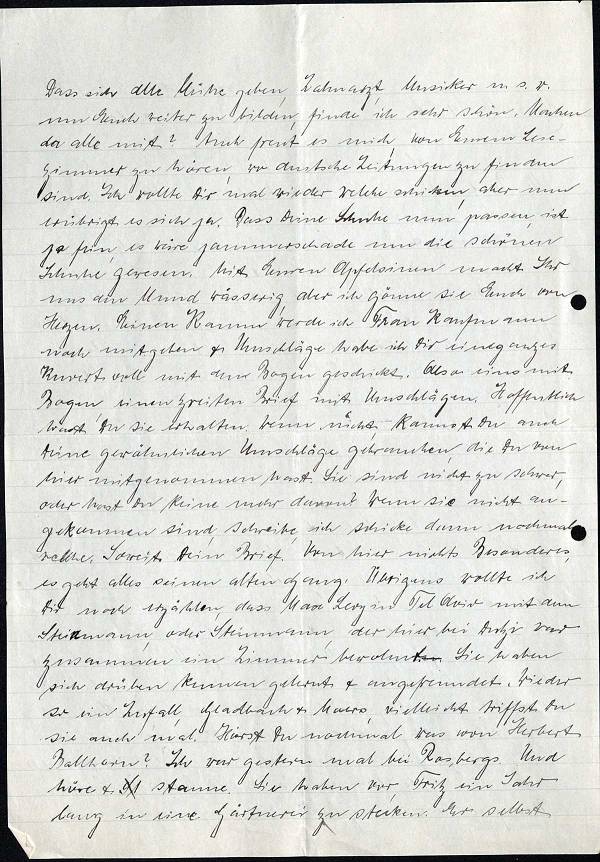 Dass sich alle Mühe geben, Zahnarzt, Musiker u. s. w.
um Euch weiter zu bilden, finde ich sehr schön. Machen
da alle mit? Auch freut es mich, von Eurem Lese-
zimmer zu hören, wo deutsche Zeitungen zu finden
sind. Ich wollte Dir mal wieder welche schicken, aber nun
erübrigt es sich ja. Dass Deine Schuhe nun passen, ist
ja fein, es wäre jammerschade um die schönen
Schuhe gewesen. Mit Euren Apfelsinen macht Ihr
uns den Mund wässerig, aber ich gönne sie Euch von
Herzen. Einen Kamm werde ich Frau Kaufmann
noch mitgeben & Umschläge habe ich Dir ein ganzes
Kuvert voll mit dem Bogen geschickt. Also eins mit
Bogen einen zweiten Brief mit Umschlägen. Hoffentlich
hast Du sie erhalten, wenn nicht, kannst Du auch
Deine gewöhnlichen Umschläge gebrauchen, die Du von
hier mitgenommen hast. Sie sind nicht zu schwer,
oder hast Du keine mehr davon? Wenn sie nicht an-
gekommen sind, schreibe, ich schicke dann nochmal
welche. Soweit Dein Brief. Von hier nichts Besonderes,
es geht alles seinen alten Gang. Übrigens wollte ich
Dir noch erzählen, dass Max Levy in Tel Aviv mit dem
Steinmann, oder Steinmann, der hier bei war
zusammen ein Zimmer bewohnt. Sie haben
sich drüben kennen gelernt & angefreundet. Wieder
so ein Zufall, Gladbach & Moers, vielleicht triffst Du
sie auch mal. Hörst Du nochmal was von Herbert
Ballhorn? Ich war gestern mal bei Rosbergs. Und
höre & staune. Sie haben vor, Fritz ein Jahr
lang in eine Gärtnerei zu stecken. Er selbst